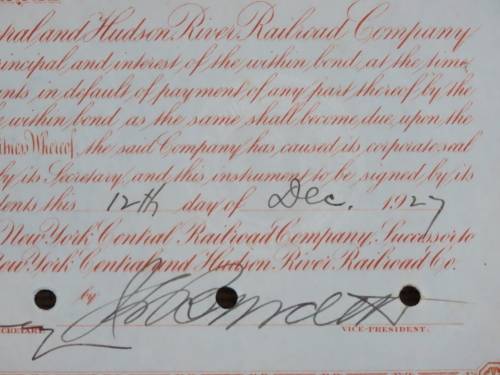 ntral and Hudson River Railroad Company
rincipal and interest of the within bond at the time
nts, in default of payment of any part thereof by the
e within bond as the same shall become due, upon the
itness Whereof, the said Company has caused its corporate seal
by its Secretary, and this instrument to be signed by its
dents this 12th day of Dec. 1927
New York Central Railroad Company, Successor to
New York Central and Hudson River Railroad Co.
by
SECRETARY. VICE-PRESIDENT.